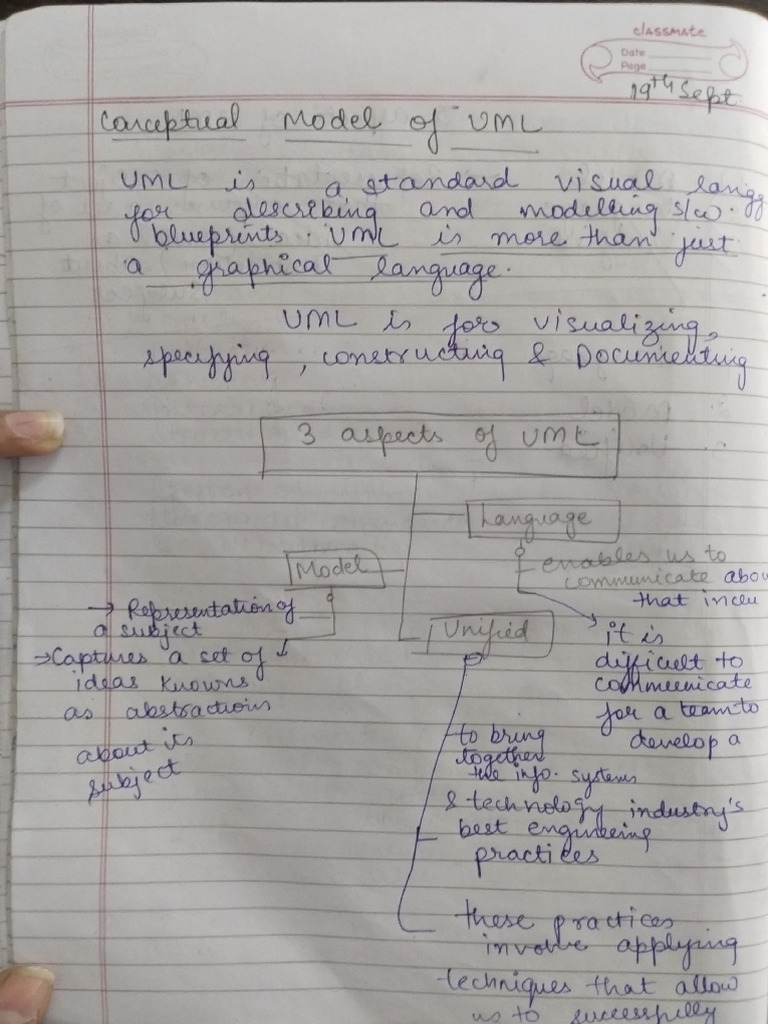 classmate
Date
Page
19th Sept
Conceptual Model of UML
UML is a standard visual langg
for describing and modelling s/w.
blueprints. UML is more than just
a graphical language.
UML is for visualizing,
specifying, constructing & Documenting
3 aspects of UML
Language
enables us to
communicate abou
that
Model
→ Representation of
a subject
→ Captures a set of
ideas knowns
as abstractions
about its
subject
Unified
it is
difficult to
communicate
for a team to
develop a
to bring
together
the info. systems
& technology industry's
best engineeing
practices
these practices
involve applying
techniques that allow
us to successfully